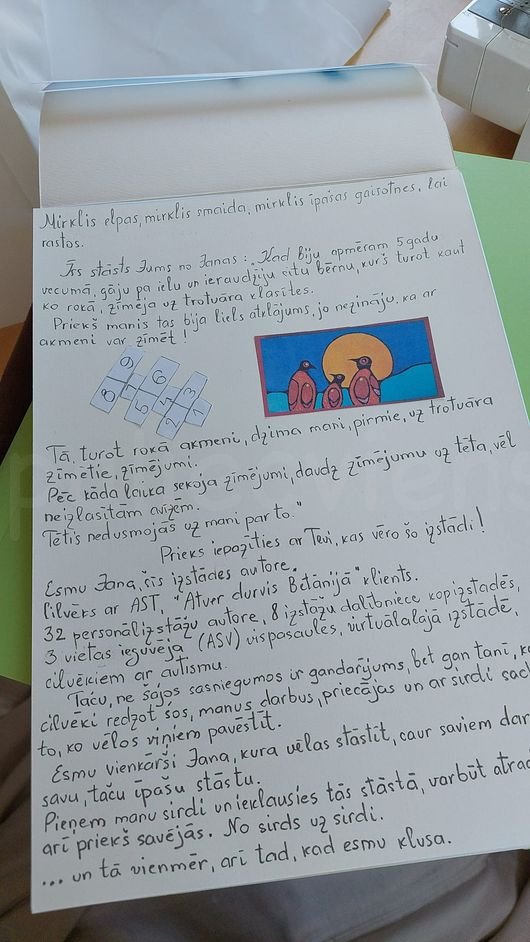 Mirklis elpas, mirklis smaida, mirklis īpašas gaisotnes, lai
rastos.
Īss stāsts Jums no Janas: „Kad biju apmēram 5 gadu
vecumā, gāju pa ielu un ieraudzīju citu bērnu, kurš turot kaut
ko rokā, zīmēja uz trotuāra klasītes.
Priekš manis tas bija liels atklājums, jo nezināju, ka ar
akmeni var zīmēt!
9
8
6
5
4
3
2
1
Tā, turot rokā akmeni, dzima mani, pirmie, uz trotuāra
zīmētie, zīmējumi.
Pēc kāda laika sekoja zīmējumi, daudz zīmējumu uz tēta, vēl
neizlasītām avīzēm.
Tētis nedusmojās uz mani par to."
Prieks iepazīties ar Tevi, kas vēro šo izstādi!
Esmu Jana, šīs izstādes autore.
Cilvēks ar AST, "Atver durvis Betānijā" klients.
32 personālizstāžu autore, 8 izstāžu dalībniece kopizstādēs,
3 vietas ieguvēja (ASV) vispasaules, virtuālalajā izstādē,
cilvēkiem ar autismu.
Taču, ne šajos sasniegumos ir gandarījums, bet gan tanī,
cilvēki redzot šos, manus darbus, priecājas un ar sirdi
to, ko vēlos viņiem pavēstīt.
Esmu vienkārši Jana, kura vēlas stāstīt, caur saviem
savu, taču īpašu stāstu.
Pieņem manu sirdi un ieklausies tās stāstā, varbūt
arī priekš savējās. No sirds uz sirdi.
... un tā vienmēr, arī tad, kad esmu klusa.